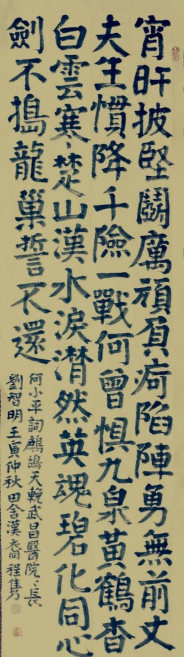 宵旰披堅鬭厲頑負疴陷陣勇無前丈
夫生慣降千險一戰何曾懼九泉黃鶴杳
白雲寒楚山漢水淚潸然英魂碧化同心
劍不搗龍巢誓不還
何小平詞鷓鴣天輓武昌醫院〻長
劉智明壬寅仲秋田舍漢程雋